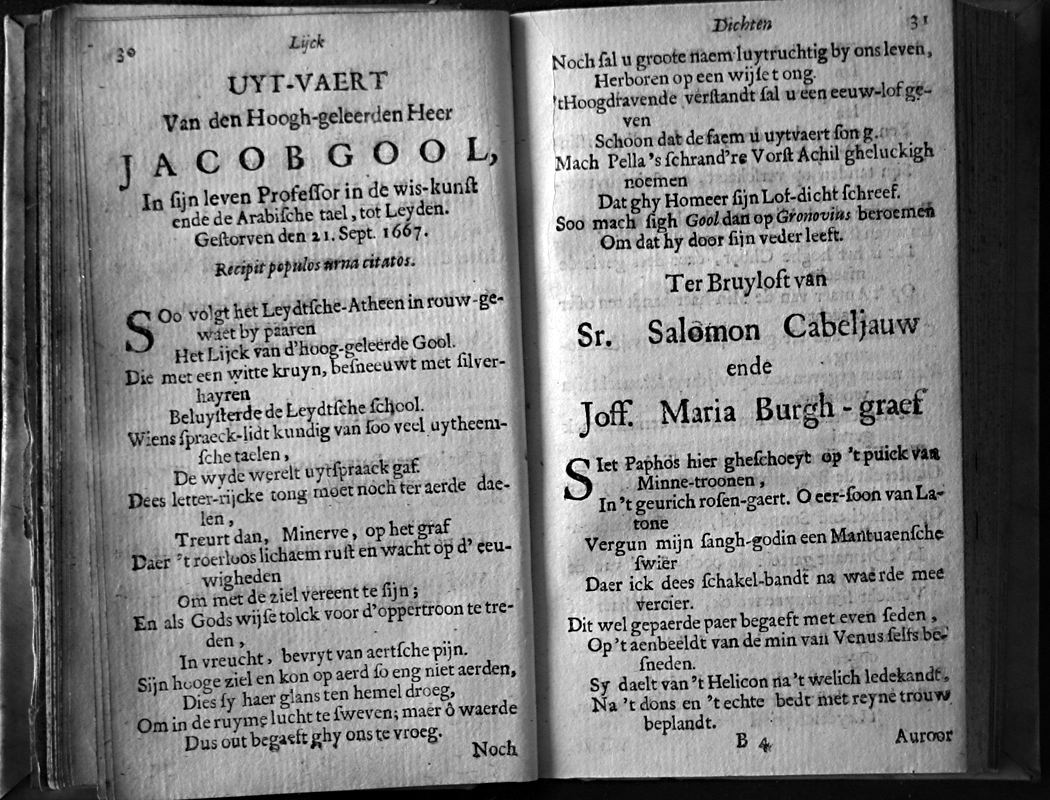 30
Lijck
UYT-VAERT
Van den Hoogh-geleerden Heer
JACOB GOOL,
In ſijn leven Profeſſor in de wis-kunſt
ende de Arabiſche tael, tot Leyden.
Geſtorven den 21. Sept. 1667.
Recipit populos urna citatos.
SOo volgt het Leydtſche-Atheen in rouw-ge-
waet by paaren
Het Lijck van d'hoog-geleerde Gool.
Die met een witte kruyn, beſneeuwt met ſilver-
hayren
Beluyſterde de Leydtſche ſchool.
Wiens ſpraeck-lidt kundig van ſoo veel uytheem-
ſche taelen,
De wyde werelt uytſpraack gaf.
Dees letter-rijcke tong moet noch ter aerde dae-
len,
Treurt dan, Minerve, op het graf
Daer 't roerloos lichaem ruſt en wacht op d'eeu-
wigheden
Om met de ziel vereent te ſijn;
En als Gods wijſe tolck voor d'oppertroon te tre-
den,
In vreucht, bevryt van aertſche pijn.
Sijn hooge ziel en kon op aerd ſo eng niet aerden,
Dies ſy haer glans ten hemel droeg,
Om in de ruyme lucht te ſweven; maer ô waerde
Dus out begaeft ghy ons te vroeg.
Noch
Dichten
31
Noch ſal u groote naem luytruchtig by ons leven,
Herboren op een wijſe tong.
'tHoogdravende verſtandt ſal u een eeuw-lof ge-
ven
Schoon dat de faem u uytvaert ſong.
Mach Pella's ſchrand're Vorſt Achil gheluckigh
noemen
Dat ghy Homeer ſijn Lof-dicht ſchreef.
Soo mach ſigh Gool dan op Gronovius beroemen
Om dat hy door ſijn veder leeft.
Ter Bruyloft van
Sr. Salomon Cabeljauw
ende
Joff. Maria Burgh-graef
SIet Paphos hier gheſchoeyt op 't puick van
Minne-troonen,
In 't geurich roſen-gaert. O eer-ſoon van La-
tone
Vergun mijn ſangh-godin een Mantuaenſche
ſwier
Daer ick dees ſchakel-bandt na waerde mee
vercier.
Dit wel gepaerde paer begaeft met even ſeden,
Op 't aenbeeldt van de min van Venus ſelfs be-
ſneden.
Sy daelt van 't Helicon na 't welich ledekandt,
Na 't dons en 't echte bedt met reyne trouw
beplandt.
B 4
Auroor